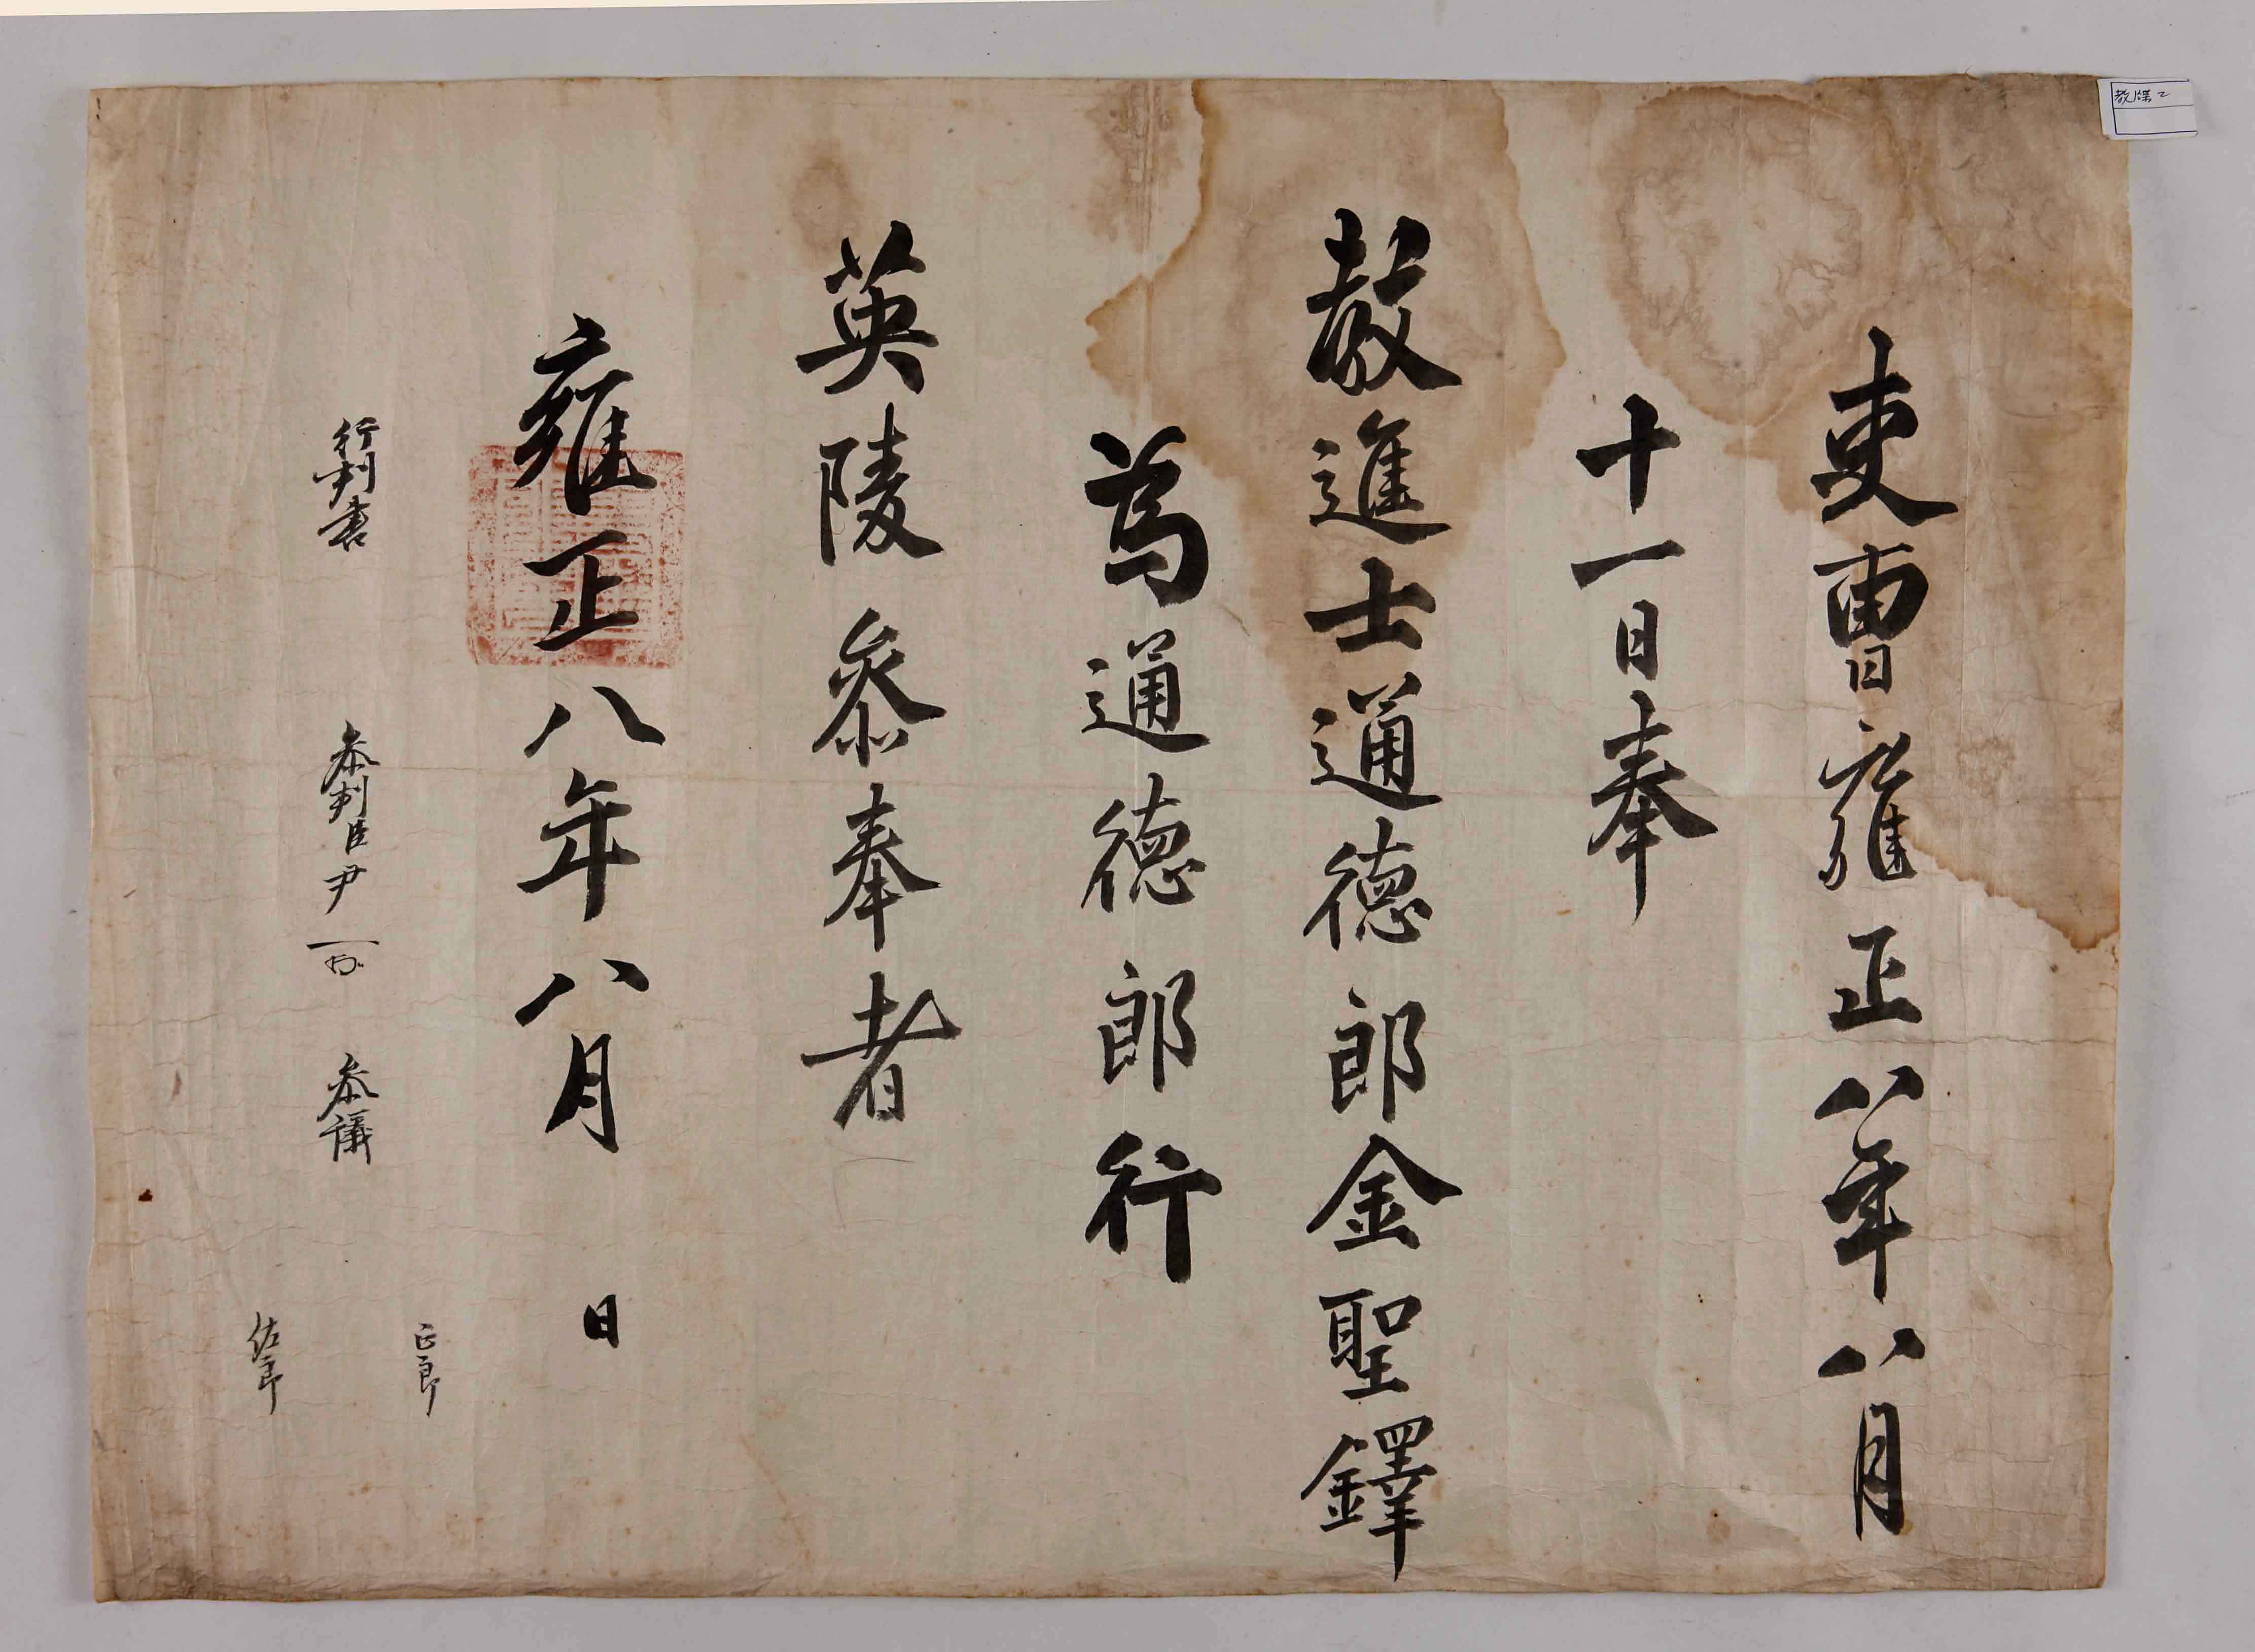 吏曹雍正八年八月
十一日奉
教進士通德郎金聖鐸
爲通德郎行
英陵參奉者
雍正八年八月 日
正郎
行判書 參判臣尹 參議
佐郎